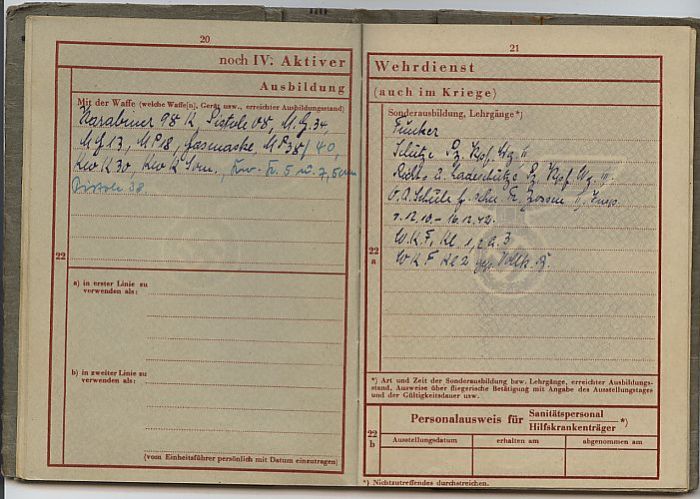 20
noch IV. Aktiver
Ausbildung
22
Mit der Waffe (welche Waffe[n], Gerät usw., erreichter Ausbildungsstand)
Karabiner 98 K, Pistole 08, M.G. 34,
M.G 13, MP 18, Gasmaske, MP 38/40,
Kw K 30, Kw K 5cm., Kw. K. 5 u. 7,5cm
Pistole 38
a) in erster Linie zu
verwenden als:
b) in zweiter Linie zu
verwenden als:
(vom Einheitsführer persönlich mit Datum einzutragen)
21
Wehrdienst
(auch im Kriege)
22
a
Sonderausbildung, Lehrgänge*)
Funker
Schütze Pz. Kpf. Wg. II
Richt- u. Ladeschütze Pz. Kpf. Wg. III
- 16.12.42.
W.K.F. Kl. 1, 2 u. 3
W K F Kl 2
*) Art und Zeit der Sonderausbildung bzw. Lehrgänge, erreichter Ausbildungs-
stand, Ausweise über fliegerische Betätigung mit Angabe des Ausstellungstages
und der Gültigkeitsdauer usw.
22
b
Personalausweis für Sanitätspersonal
Hilfskrankenträger *)
Ausstellungsdatum erhalten am abgenommen am
*) Nichtzutreffendes durchstreichen.